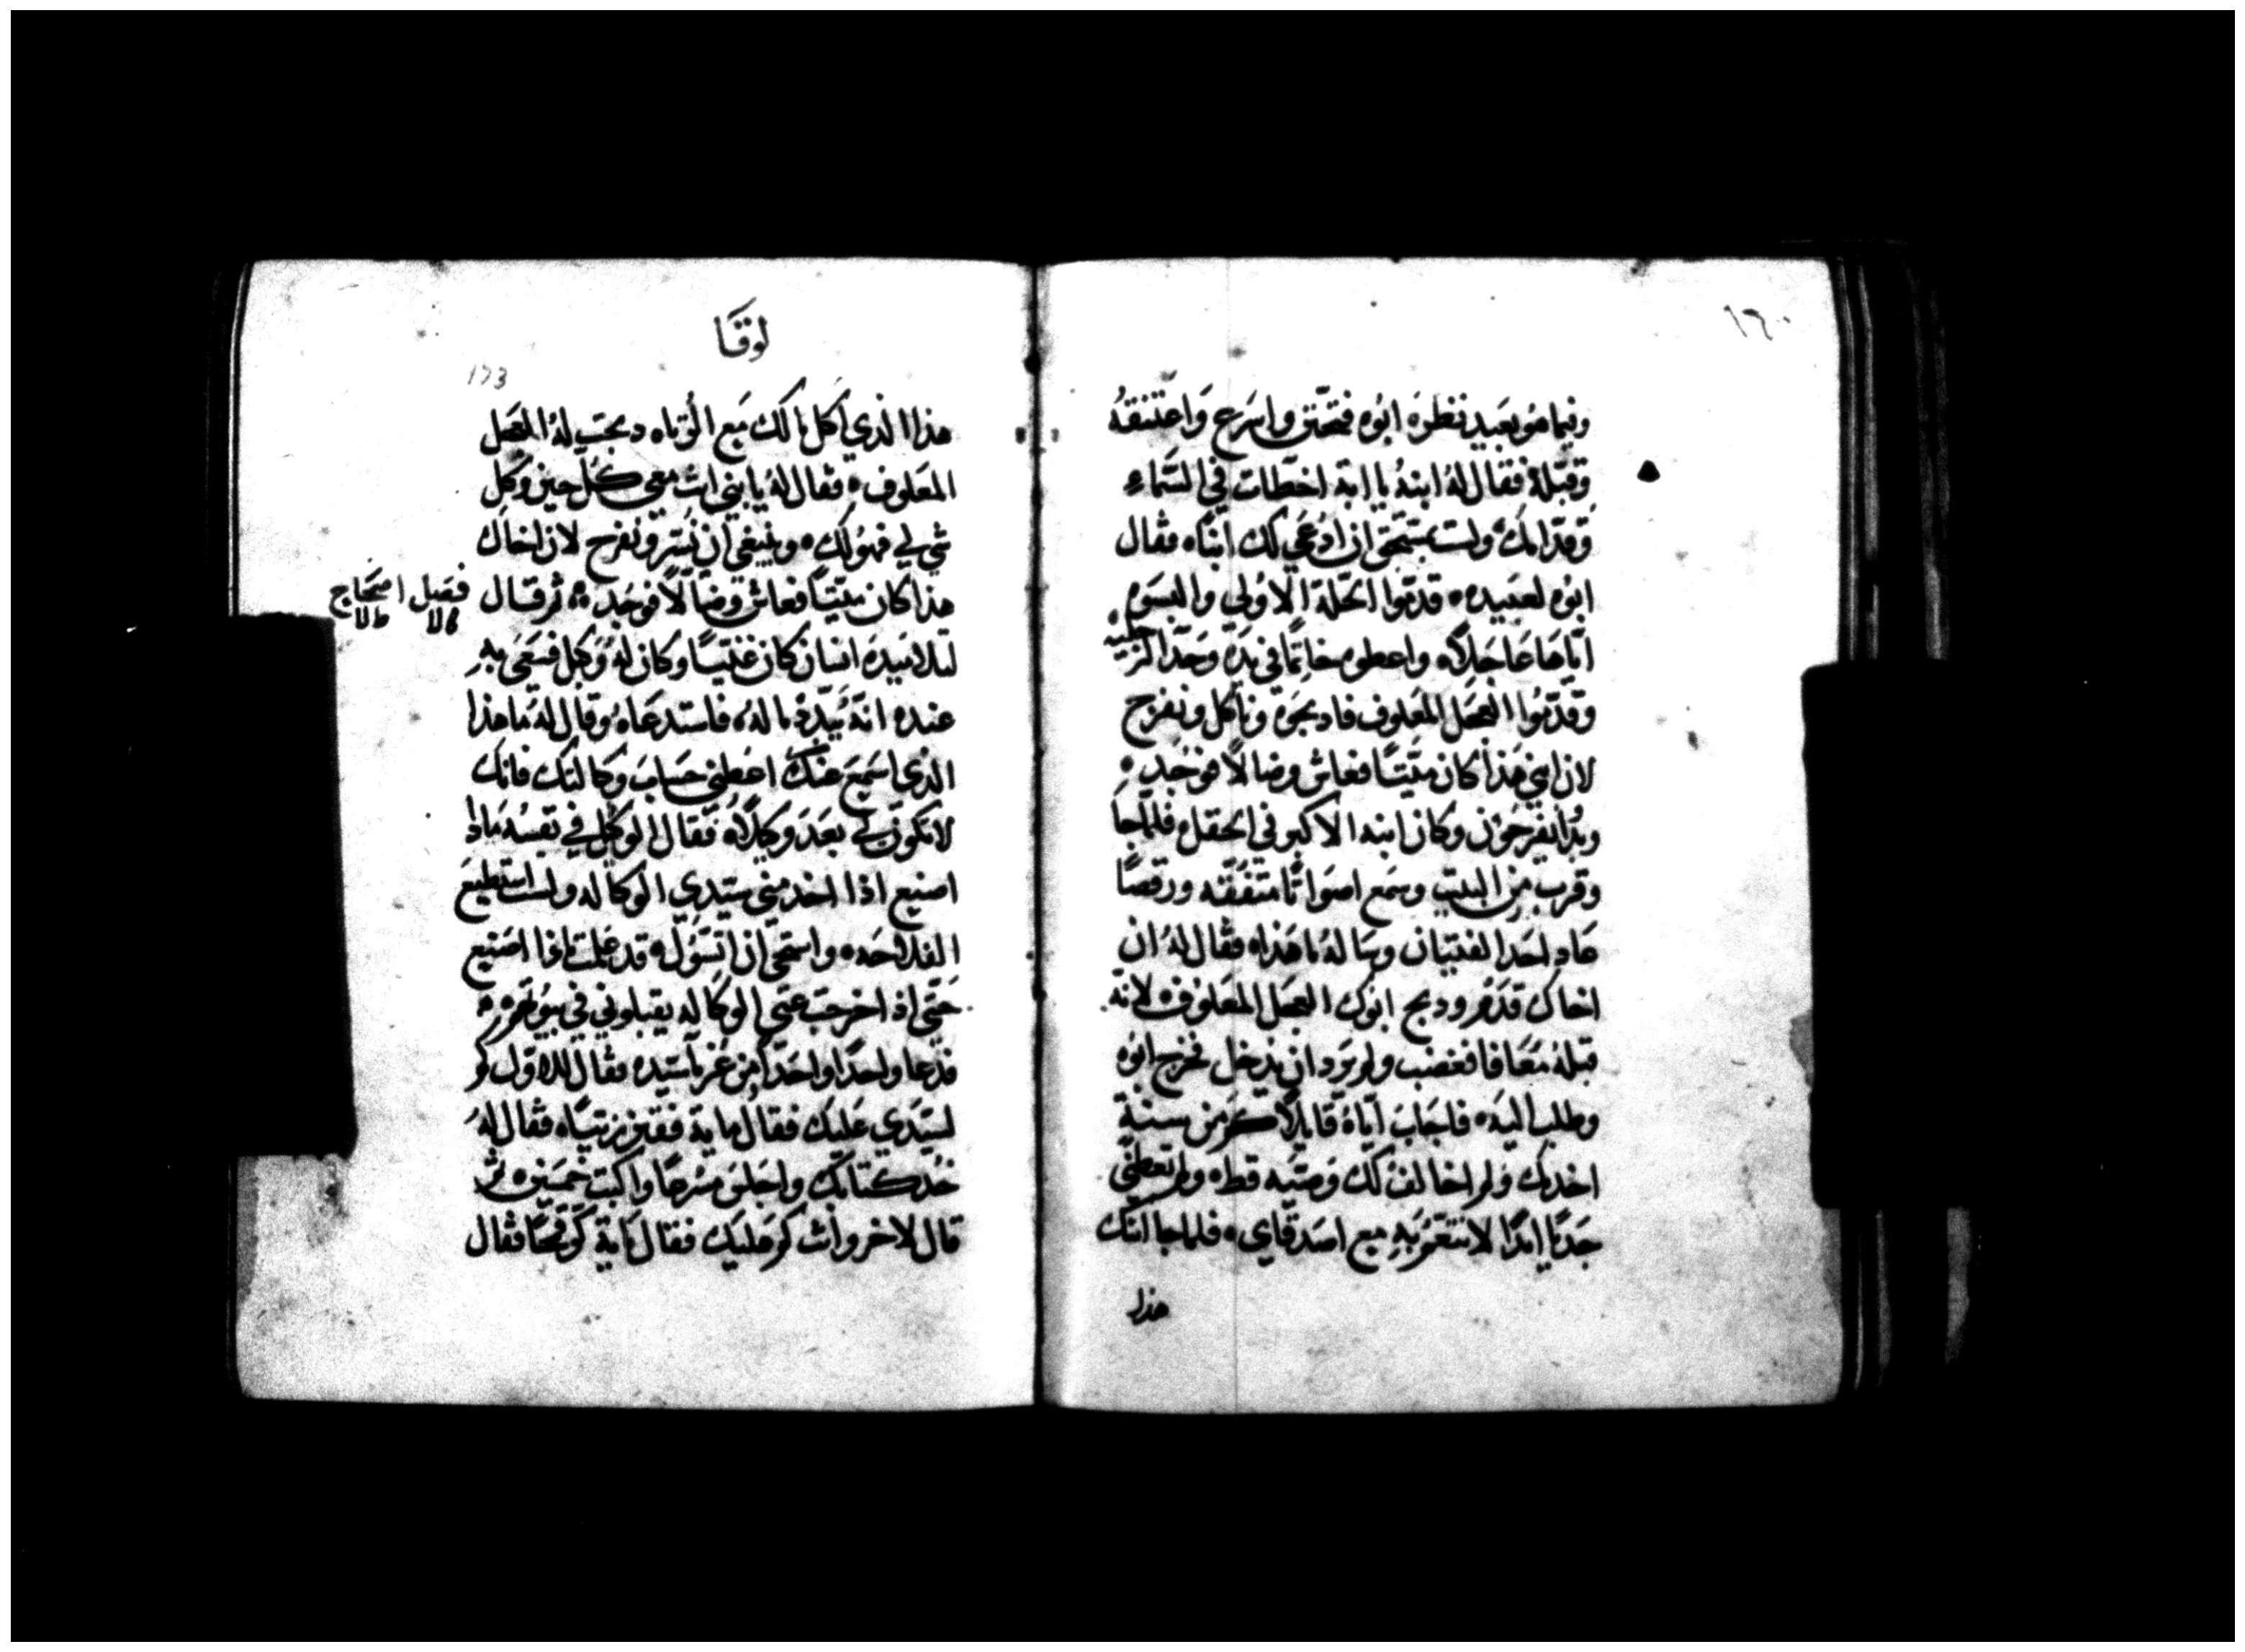 ١٦٠
وفيما هو بعيد نظره ابوه فتحنن واسرع واعتنقهُ
وقبّله فقال لهُ ابنهُ يا ابة اخطات في السماء
وقدّامك ولست بمستحق ان ادعي لك ابناه فقال
ابوه لعبيده قدموا الحلة الاولي والبسوه
ايّاها عاجلاً واعطوه خاتمًا في يده وحدا الرجليه
وقدّموا العجل المعلوف فادبحوه وناكل ونفرح
لان ابني هذا كان ميّتًا فعاش وضالاً فوجد
وبدا يفرحون وكان ابنه الاكبر في الحقل فلما جا
وقرب من البيت وسمع اصواتًا متفقّه ورقصًا
عاد احد الفتيان وساله ما هذا فقال لهُ ان
اخاك قدم ودبح ابوك العجل المعلوف لانّه
قبله معافا فغضب ولم يرد ان يدخل فخرج ابوه
وطلب اليه فاجاب اياهُ قايلاً كم من سنة
اخدمك ولم اخالف لك وصيّه قط ولم تعطني
جديًا ابدًا لاتنعّم به مع اصدقاي فلما جا ابنك
هذا
لوقا
173
هذا الذي اكل مالك مع الزناه دبحت لهُ العجل
المعلوف فقال لهُ يا بني انت معي كل حين وكل
شي لي فهو لك وينبغي ان نسر ونفرح لان اخاك
هذا كان ميّتًا فعاش وضالاً فوجد ثم قال
فصل اصحاح
لتلاميده انسان كان غنيًا وكان لهُ وكيل فسعي به
عنده انهُ يبدّد ماله فاستدعاه وقال لهُ ما هذا
الذي اسمع عنك اعطني حساب وكالتك فانك
لا تكون لي بعد وكيلاً فقال الوكيل في نفسه ماذا
اصنع اذا اخد مني سيّدي الوكاله ولست استطيع
الفلاحه واستحي ان اتسوّل قد علمت ماذا اصنع
حتّي اذا خرجت عني الوكاله يقبلوني في بيوتهم
فدعا واحدًا واحدًا من غرما سيّده فقال للاول كم
لسيّدي عليك فقال ماية فقيز زيتًا فقال لهُ
خد كتابك واجلس مسرعًا واكتب خمسين ثم
قال لاخر وانت كم عليك فقال ماية كر قمحًا فقال